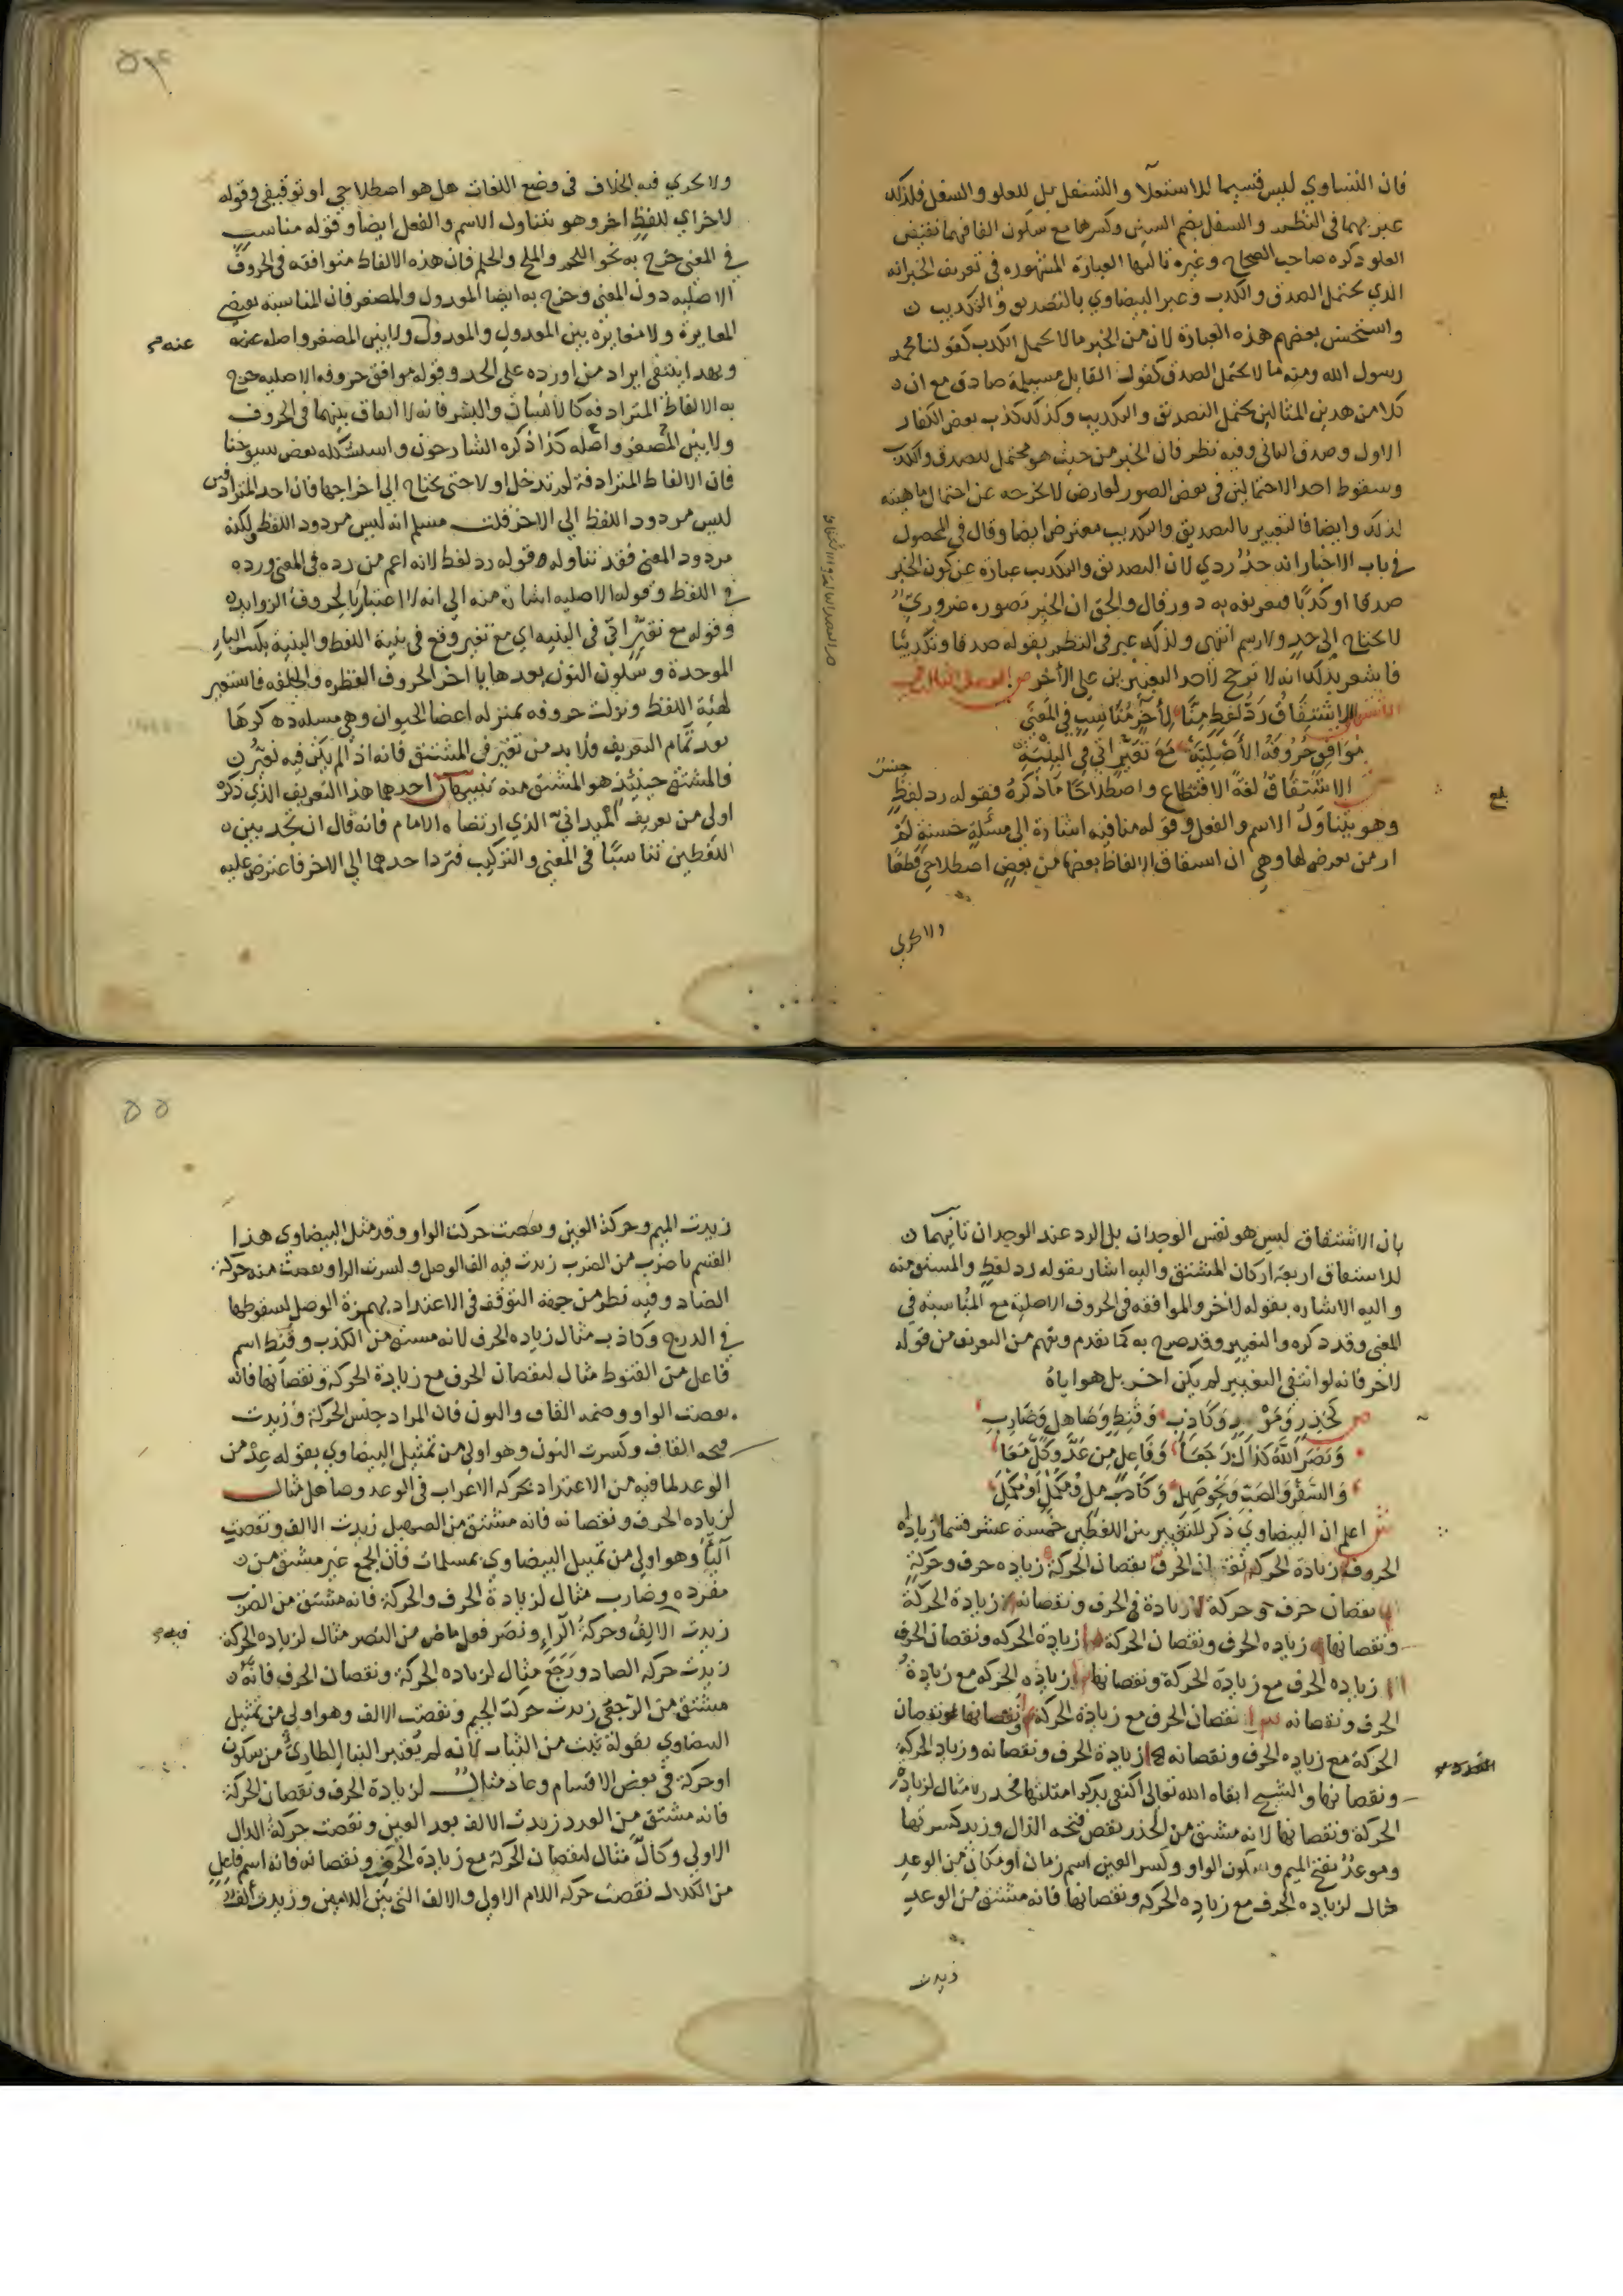 فان التساوي ليس قسيما للاستعلا والتسفل بل للعلو والسفل فلذلك
عبر بهما في النظم والسفل بضم السين وكسرها مع سكون الفا فيهما نقيض
العلو ذكره صاحب الصحاح وغيره ثالثها العبارة المشهورة في تعريف الخبر انه
الذي يحتمل الصدق والكذب وعبر البيضاوي بالتصديق والتكذيب
واستحسن بعضهم هذه العبارة لان من الخبر ما لا يحتمل الكذب كقولنا محمد
رسول الله ومنه ما لا يحتمل الصدق كقول القايل مسيلمة صادق مع ان
كلا من هذين المثالين يحتمل التصديق والتكذيب وكذلك كذب بعض الكفار
الاول وصدق الثاني وفيه نظر فان الخبر من حيث هو محتمل للصدق والكذب
وسقوط احد الاحتمالين في بعض الصور لعارض لا يخرجه عن احتمال ماهيته
لذلك وايضا فالتعبير بالتصديق والتكذيب معترض ايضا وقال في المحصول
في باب الاخبار انه حد ردي لان التصديق والتكذيب عبارة عن كون الخبر
صدقا او كذبا فتعريفه به دور قال والحق ان الخبر تصوره ضروري
لا يحتاج الى حد ولا رسم انتهى ولذلك عبر في النظم بقوله صدقا وتكذيبا
فاشعر بذلك انه لا ترجح لاحد التعبيرين على الآخر ص الفصل الثالث في
الاشتقاق الاشتقاق رد لفظ منا لآخر مناسب في المعنى
موافق حروفه الأصلية مع تغير اتى في البنية
الاشتقاق لغة الاقتطاع واصطلاحا ما ذكره فقوله رد لفظ
جنس
وهو يتناول الاسم والفعل وقوله منا فيه اشارة الى مسئلة حسنة لم
ار من تعرض لها وهي ان اشتقاق الالفاظ بعضها من بعض اصطلاحي قطعا
بلغ
ولا يجري
ولا يجري فيه الخلاف في وضع اللغات هل هو اصطلاحي او توقيفي وقوله
لاخر اي للفظ اخر وهو يتناول الاسم والفعل ايضا وقوله مناسب
في المعنى خرج به نحو اللحم والملح والحلم فان هذه الالفاظ متوافقة في الحروف
الاصليه دون المعنى وخرج به ايضا المعدول والمصغر فان المناسبة تقتضي
المغايرة ولا مغايرة بين المعدول والمعدول ولا بين المصغر واصله عنه
عنه
وبهذا ينتفي ايراد من اورده على الحد وقوله موافق حروفه الاصليه خرج
به الالفاظ المترادفه كالانسان والبشر فانه لا اتفاق بينهما في الحروف
ولا بين المصغر واصله كذا ذكره الشارحون واستشكله بعض شيوخنا
فان الالفاظ المترادفة لم تدخل اولا حتى يحتاج الى اخراجها فان احد المترادفين
ليس مردود اللفظ الى الاخر قلت مسلم انه ليس مردود اللفظ ولكنه
مردود المعنى فقد تناوله قوله رد لفظ لانه اعم من رده في المعنى ورده
في اللفظ وقوله الاصليه اشارة منه الى انه لا اعتبار بالحروف الزوايد
وقوله مع تغير اتى في البنيه اي مع تغير وقع في بنية اللفظ والبنية بكسر البا
الموحدة وسكون النون بعدها يا اخر الحروف الفطره والخلقه فاستعير
لهيئة اللفظ ونزلت حروفه بمنزله اعضا الحيوان وهي مسله ذكرها
بعد تمام التعريف ولا بد من تغير في المشتق فانه اذا لم يكن فيه تغير
فالمشتق حينئذ هو المشتق منه تنبيهان احدهما هذا التعريف الذي ذكره
اولى من تعريف الميداني الذي ارتضاه الامام فانه قال ان تجد بين
اللفظين تناسبا في المعنى والتركيب فترد احدهما الى الاخر فاعترض عليه
بان الاشتقاق ليس هو نفس الوجدان بل الرد عند الوجدان ثانيهما
للاشتقاق اربعة اركان المشتق واليه اشار بقوله رد لفظ والمشتق منه
واليه الاشاره بقوله لاخر والموافقه في الحروف الاصلية مع المناسبة في
المعنى وقد ذكره والتغيير وقد صرح به كما تقدم ويفهم من التعريف من قوله
لاخر فانه لو انتفى التغيير لم يكن اخر بل هو اياه
ص كحذر وموعد وكاذب وقنط وصاهل وضارب
ونصر الله كذاك رجعا وفاعل من عد وكل معا
اعلم ان البيضاوي ذكر للتغيير بين اللفظين خمسة عشر قسما زياده
الحروف زيادة الحركة نقصان الحرف نقصان الحركة زياده حرف وحركة
نقصان حرف وحركة زيادة في الحرف ونقصانه زيادة الحركة
ونقصانها زياده الحرف ونقصان الحركة زيادة الحركه ونقصان الحرف
زياده الحرف مع زيادة الحركة ونقصانها زياده الحركه مع زيادة
الحرف ونقصانه نقصان الحرف مع زيادة الحركة ونقصانها ونقصان
الحركة مع زياده الحرف ونقصانه زيادة الحرف ونقصانه وزياد الحركة
ونقصانها والشيخ ابقاه الله تعالى اكتفى بذكر امثلتها فحذر مثال لزيادة
الحركة ونقصانها لانه مشتق من الحذر بنقص فتحه الذال وزيد كسرتها
وموعد بفتح الميم وسكون الواو وكسر العين اسم زمان او مكان من الوعد
مثال لزياده الحرف مع زياده الحركه ونقصانها فانه مشتق من الوعد
زيدت
زيدت الميم وحركة العين ونقصت حركت الواو وقد مثل البيضاوي هذا
القسم باضرب من الضرب زيدت فيه الف الوصل وكسرت الرا ونقصت منه حركة
الضاد وفيه نظر من جهة التوقف في الاعتداد بهمزة الوصل لسقوطها
في الدرج وكاذب مثال زياده الحرف لانه مشتق من الكذب وقنط اسم
فاعل من القنوط مثال لنقصان الحرف مع زيادة الحركة ونقصانها فانه
نقصت الواو وضمه القاف والنون فان المراد جنس الحركة وزيدت
فتحه القاف وكسرت النون وهو اولى من تمثيل البيضاوي بقوله عد من
الوعد لما فيه من الاعتداد بحركه الاعراب في الوعد وصاهل مثال
لزياده الحرف ونقصانه فانه مشتق من الصهيل زيدت الالف ونقصت
اليا وهو اولى من تمثيل البيضاوي بمسلمات فان الجمع غير مشتق من
مفرده وضارب مثال لزيادة الحرف والحركة فانه مشتق من الضرب
زيدت الالف وحركة الراء ونصر فعل ماض من النصر مثال لزياده الحركة
زيدت حركه الصاد ورجع مثال لزياده الحركة ونقصان الحرف فانه
مشتق من الرجعى زيدت حركة الجيم ونقصت الالف وهو اولى من تمثيل
البيضاوي بقوله بنت من النبات لانه لم يعتبر البنا الطارئ من سكون
او حركة في بعض الاقسام وعاد مثال لزيادة الحرف ونقصان الحركة
فانه مشتق من العدد زيدت الالف بعد العين ونقصت حركة الدال
الاولى وكال مثال لنقصان الحركة مع زيادة الحرف ونقصانه فانه اسم فاعل
من الكلال نقصت حركه اللام الاولى والالف التي بين اللامين وزيدت الف